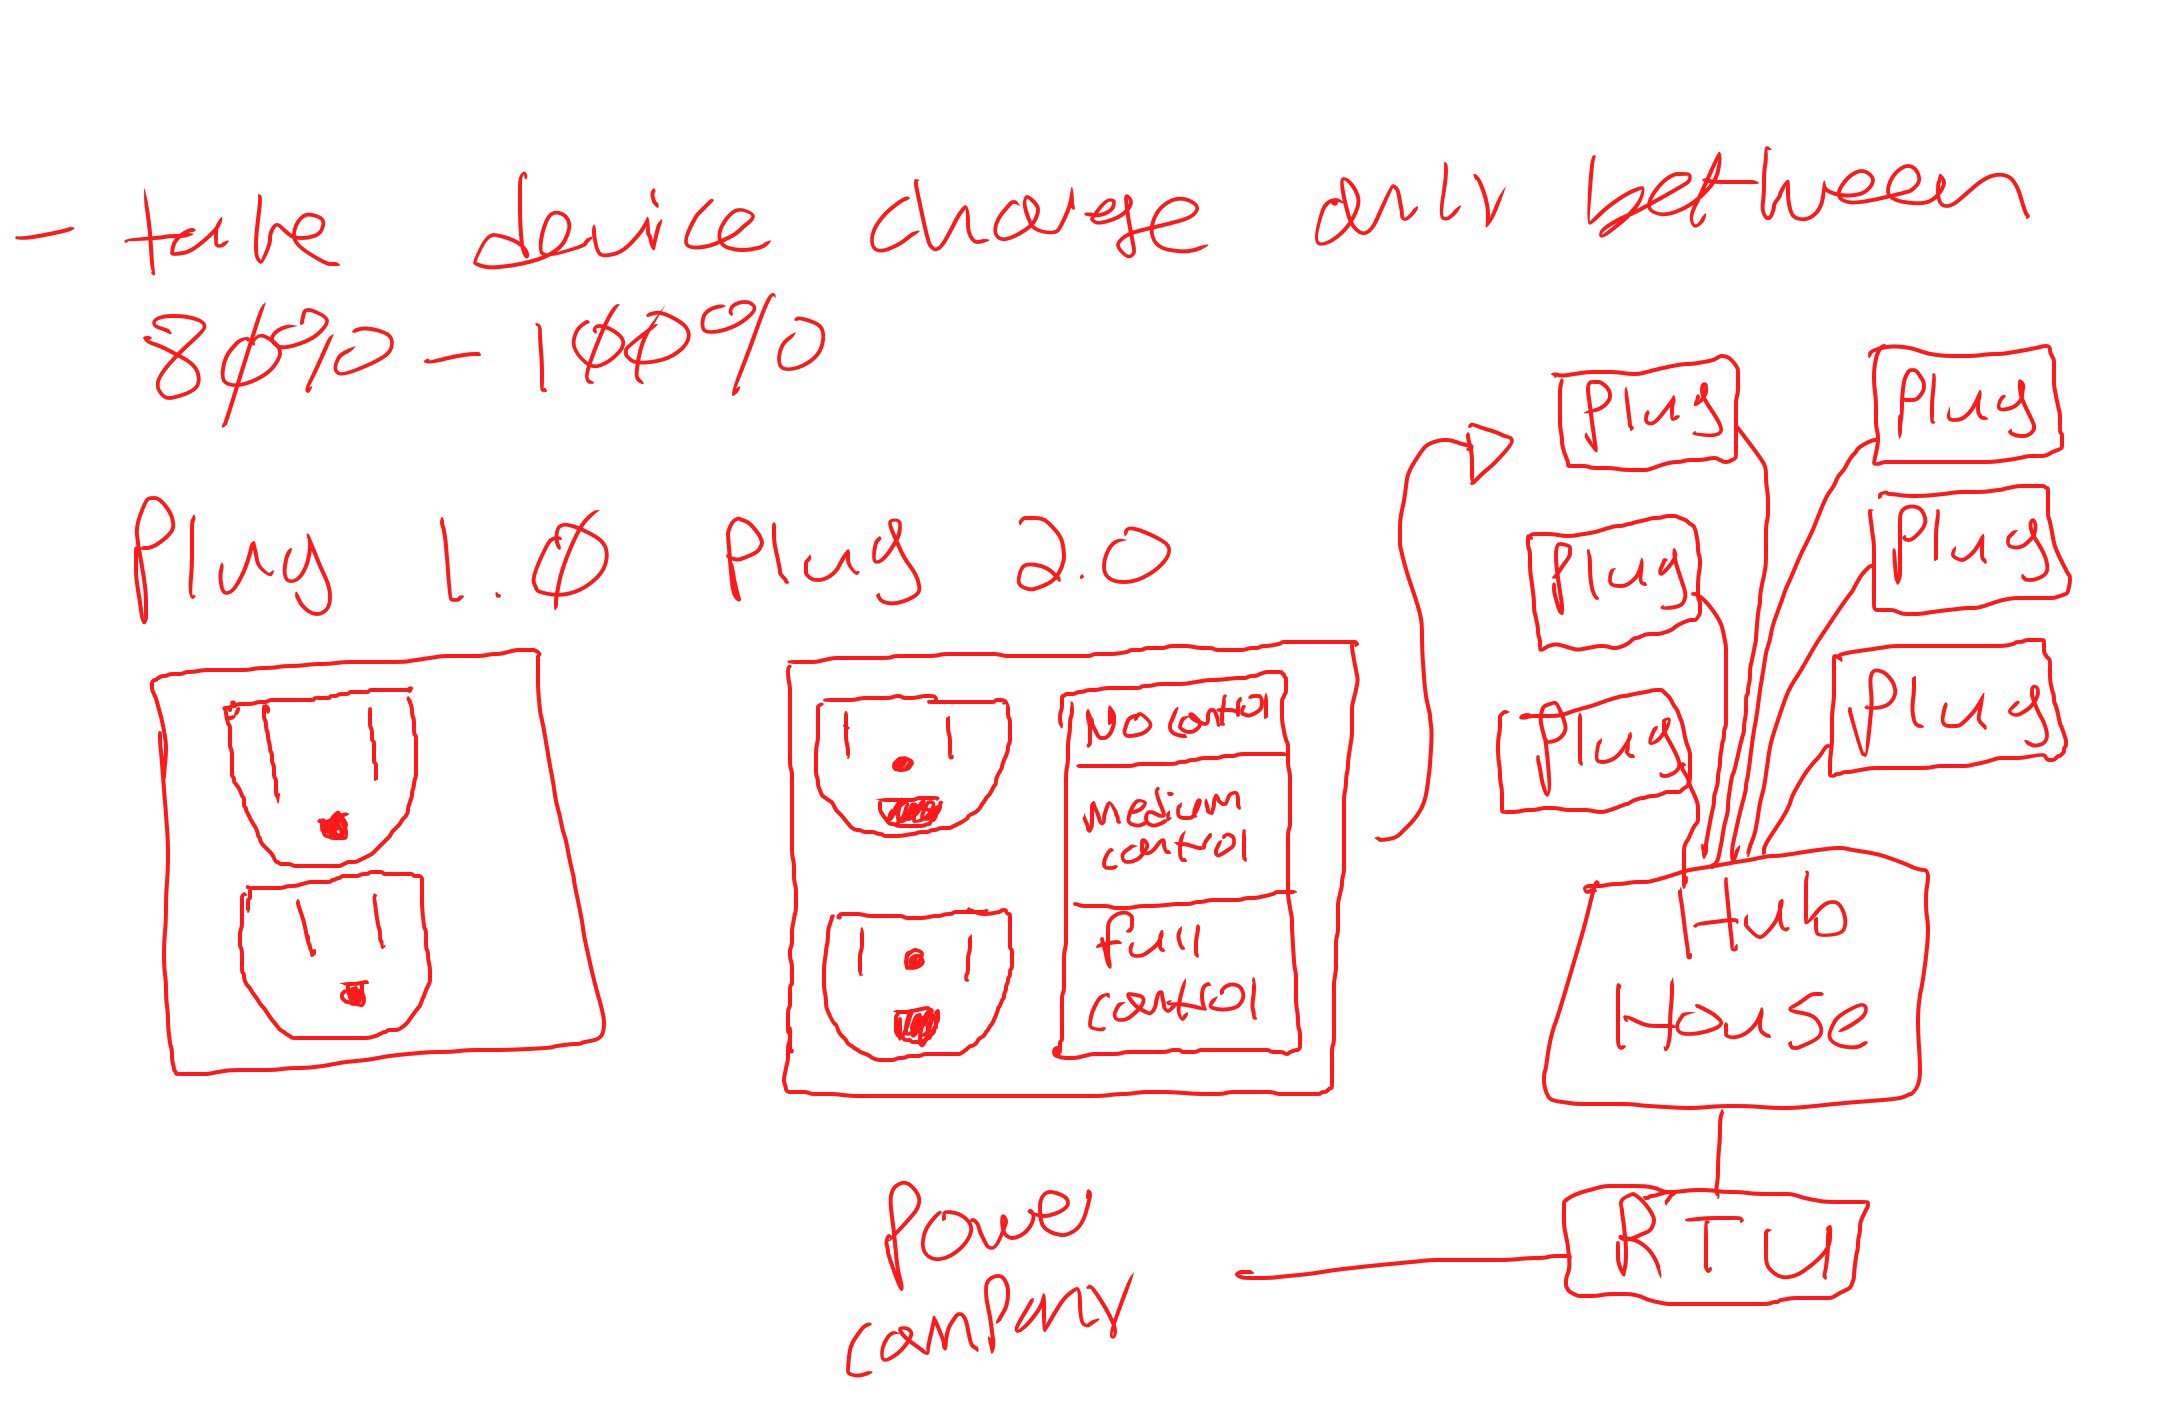 - take device charge only between
80% - 100%
Plug 1.0 Plug 2.0
No control
medium
control
full
control
Plug Plug
Plug Plug
Plug Plug
Hub
House
RTU
Power
company